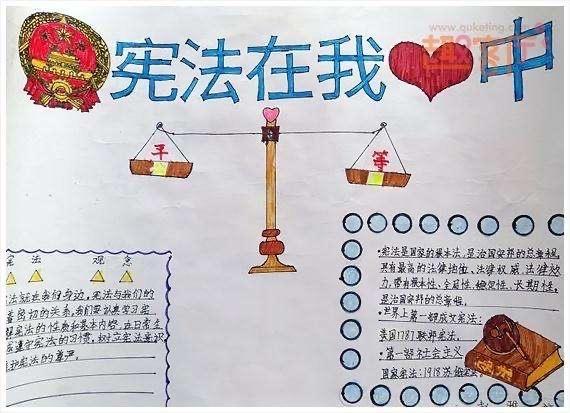 www.quketing.com
宪法在我中
平 等
宪 法 观 念
法就在我们身边，宪法与我们的
着密切的关系，我们要认真学习宪
解宪法的性质和基本内容，在日常生
成遵守宪法的习惯，树立宪法意识
护宪法的尊严。
·宪法是国家的根本法，是治国安邦的总章程，
具有最高的法律地位、法律权威、法律效
力，带有根本性、全局性、稳定性、长期性，
是治国安邦的总章程。
·世界上第一部成文宪法：
美国1787联邦宪法。
·第一部社会主义
国家宪法：1918苏